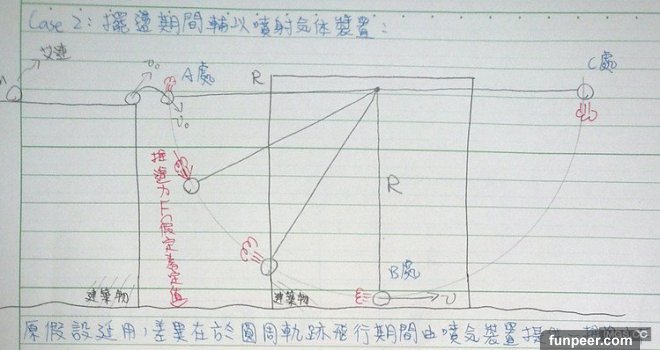 Case 2: 擺盪期間輔以噴射気体裝置:
艾連
v₀
A處
R
C處
v₀
推進力F(假定為定值)
R
B處
v
建築物
建築物
原假設延用,差異在於圓周軌跡飛行期間由噴気裝置提
funpeer.com